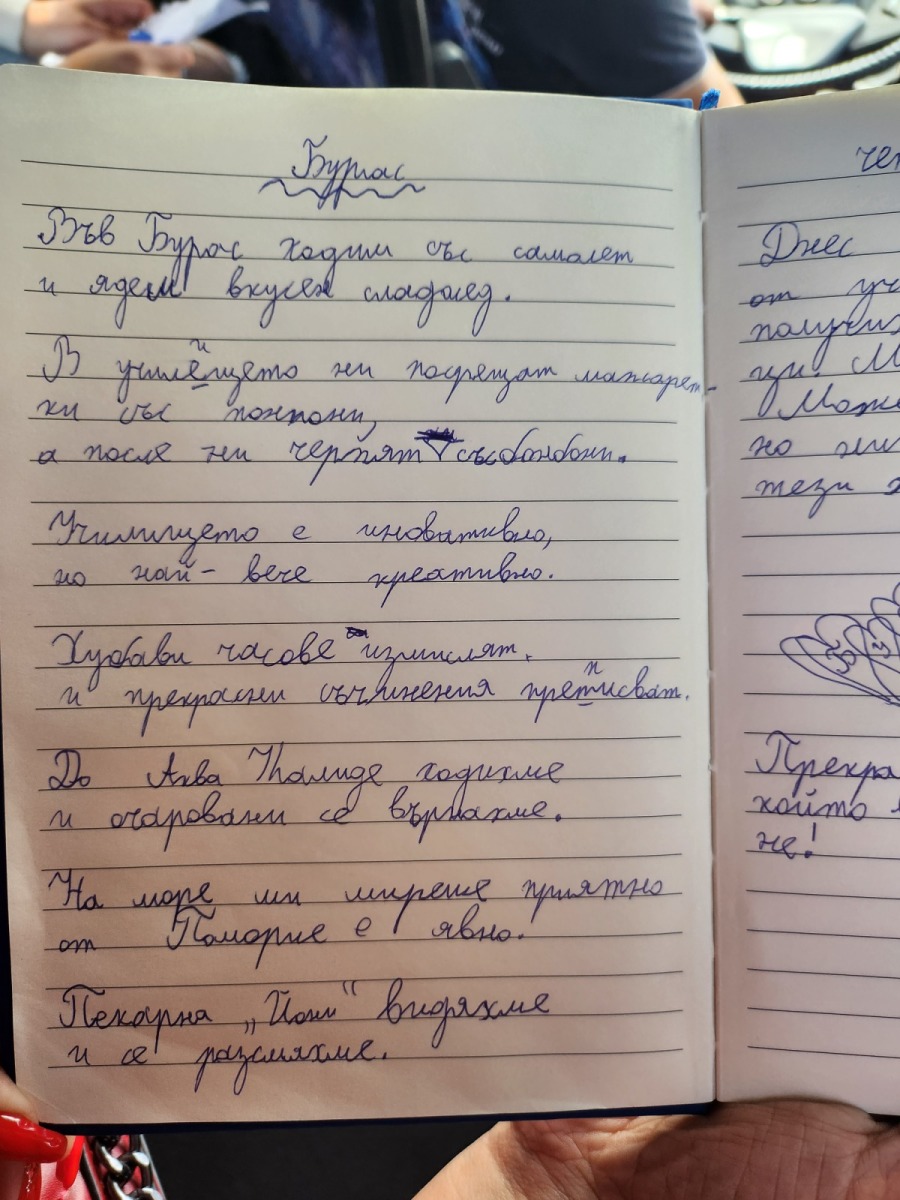 Бургас
Във Бургас ходим със самолет
и ядем вкусен сладолед.
В училището ни посрещат мажорет-
ки със понпони,
а после ни черпят със бонбони.
Училището е иновативно,
но най-вече креативно.
Хубави часове измислят,
и прекрасни съчинения преписват.
До Аква Калиде ходихме
и очаровани се върнахме.
На море ми мирише приятно
от Поморие е явно.
Пекарна „Йони“ видяхме
и се разсмяхме.
Днес
от уч
получих
ци. М
Може
но ни
тези
Прекра
който
не!